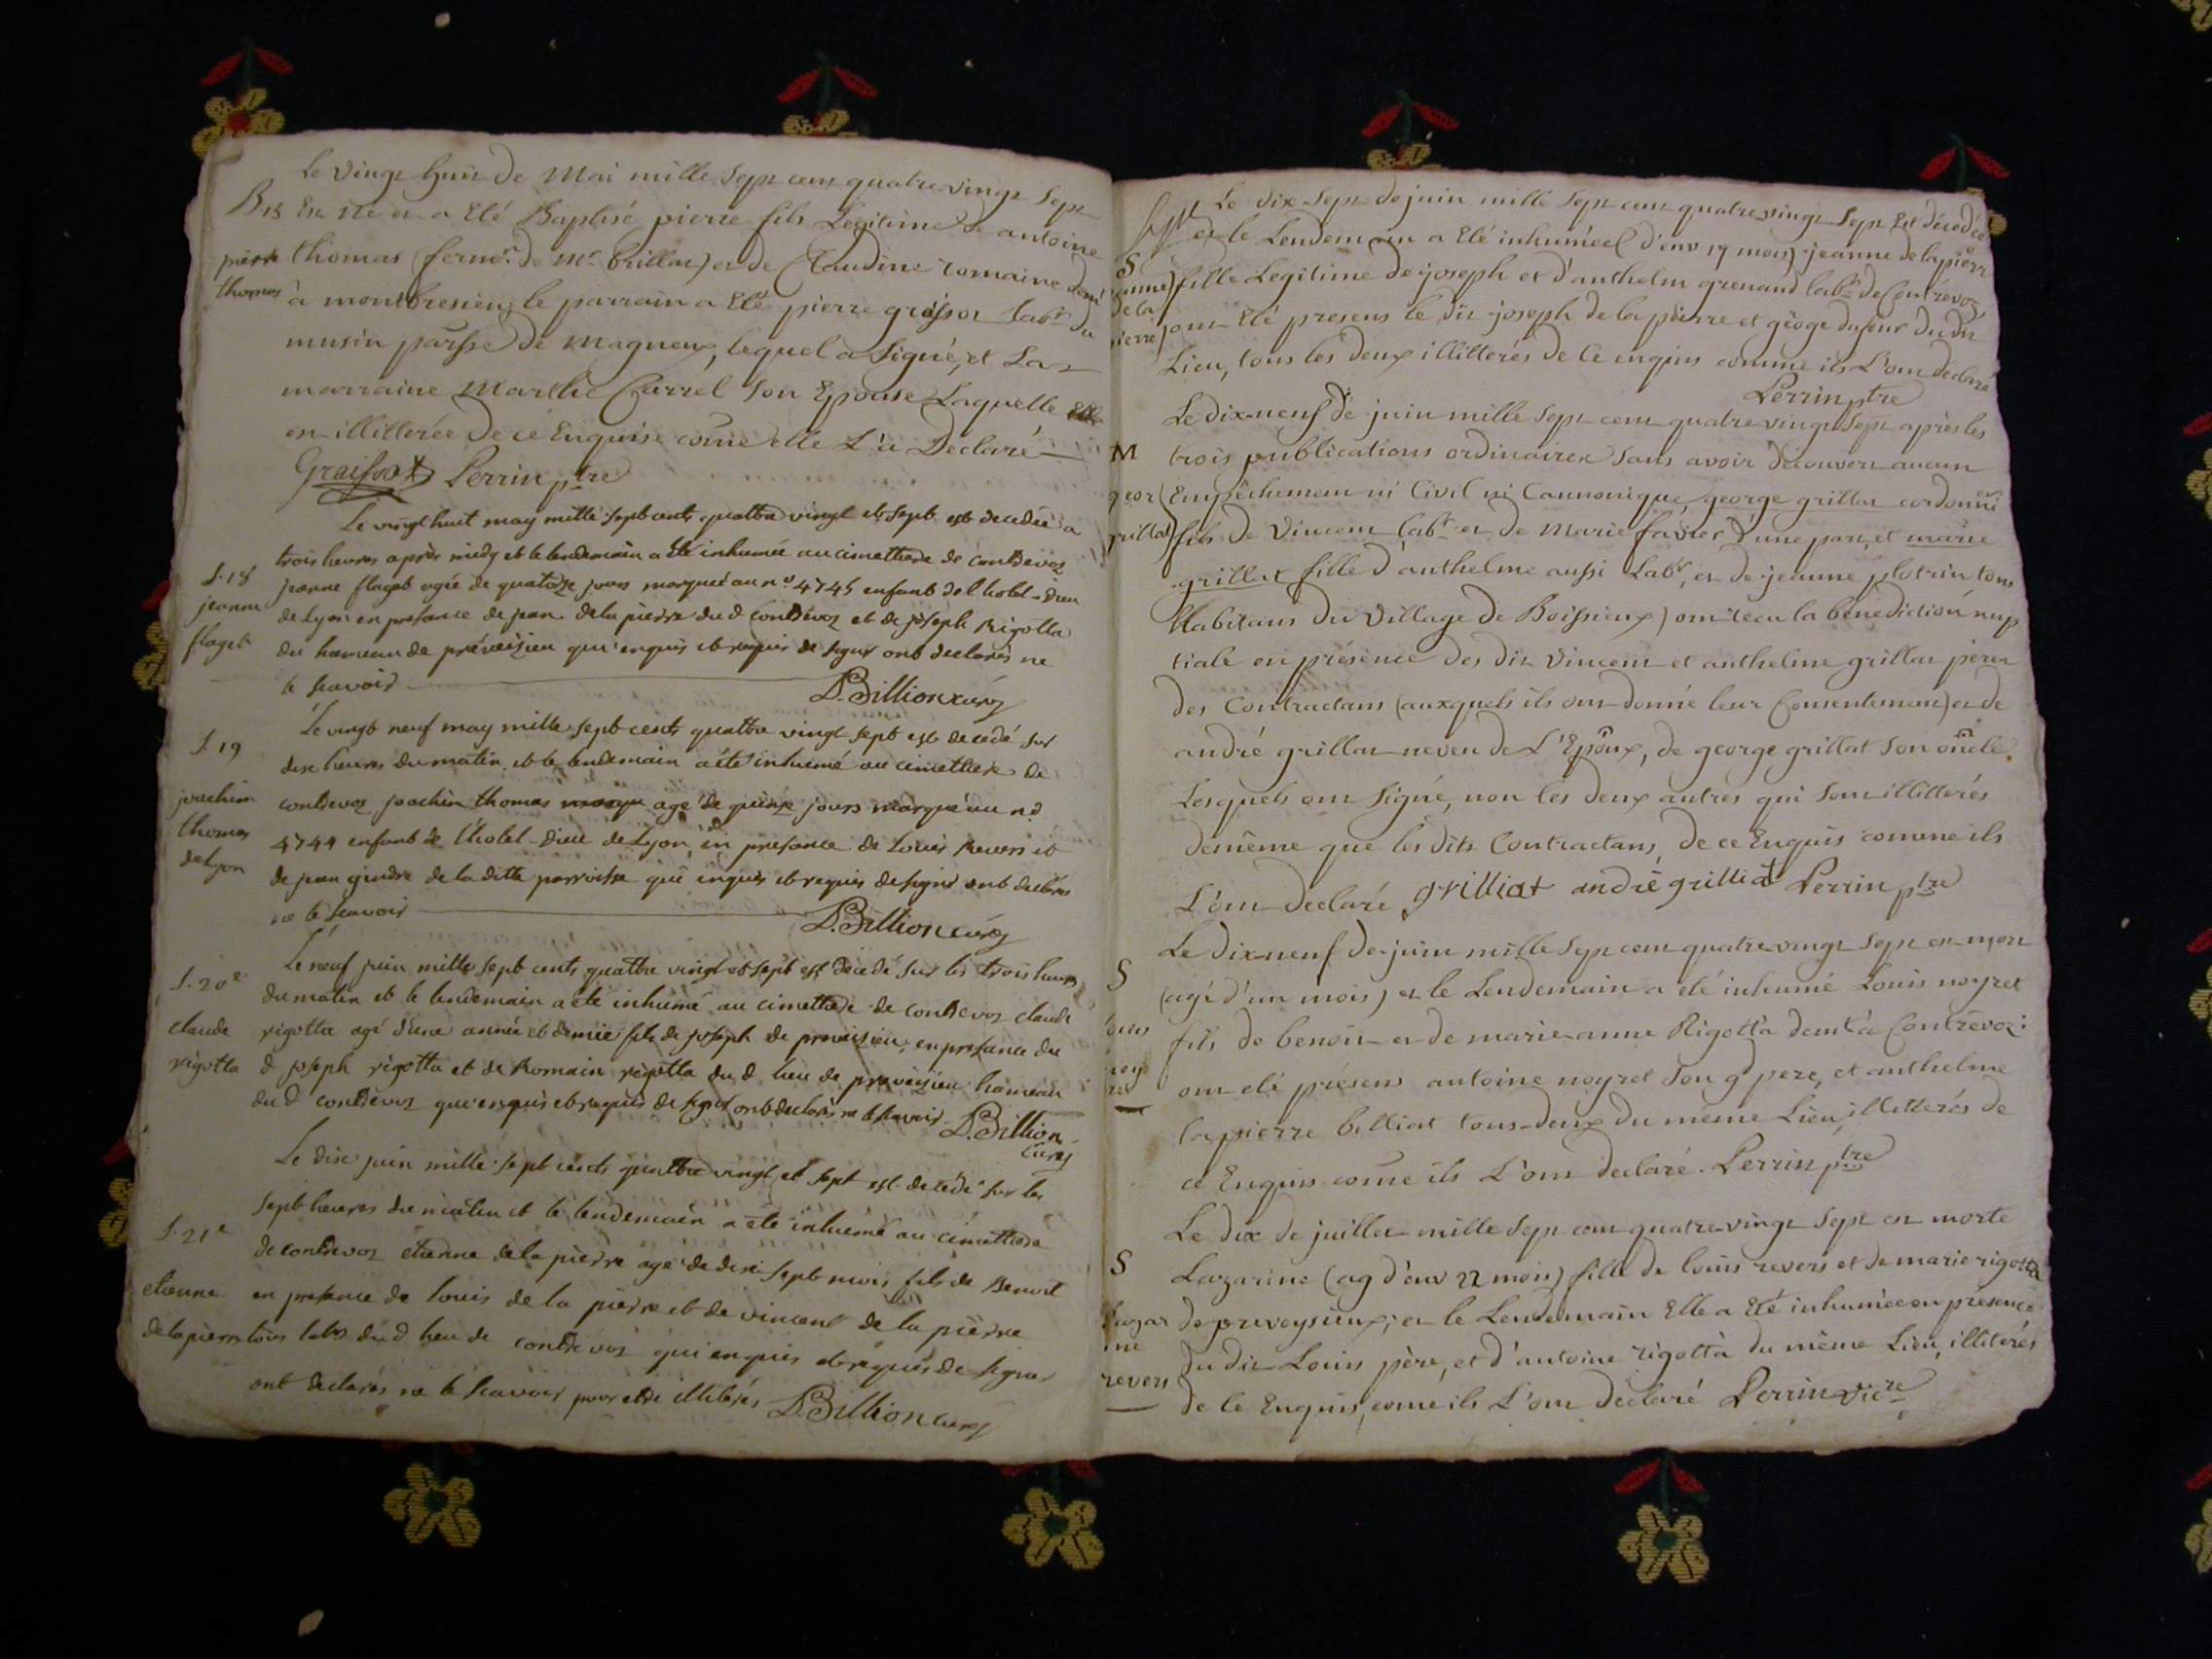 Le vingt huit de Mai mille Sept cent quatre vingt Sept
Est né et a Eté Baptisé pierre fils Legitime de antoine
pierre
thomas
thomas (fermr. de Mr brillat) et de Claudine romaine demt
à montbresieu, le parrain a Eté pierre graisson Labr du
musin parsse de magneux, lequel a Signé, et La
marraine Marthe Carrel Son Epouse Laquelle
est illitterée de ce Enquise come elle L'a Declaré
Graissot Perrin ptre
Le vingt huit may mille sept cents quattre vingt et sept est decedée a
trois heures après midy et le lendemain a été inhumée au cimettiere de contrevoz
S. 18
jeanne
flaget
jeanne flaget agée de quatorze jours marquée au no 4745 enfant de l'hotel-Dieu
de Lyon en presance de jean delapierre du d contrevoz et de joseph Rigotta
du hameau de préveisieu qui enquis et requis de signer ont declarés ne
le scavoir L.Billion curé
Le vingt neuf may mille sept cents quattre vingt sept est decedé sur
S. 19
dix heures du matin et le lendemain a été inhumé au cimettiere de
joachim
thomas
de Lyon
contrevoz joachim thomas agé de quinze jours marqué au no
4744 enfant de l'hotel-Dieu de Lyon, en presance de Louis Revers et
de jean gendre de la ditte parroisse qui enquis et requis de signer ont declarés
ne le scavoir L.Billion curé
Le neuf juin mille sept cents quattre vingt et sept est décedé sur les trois heures
S. 20e
claude
rigotta
du matin et le lendemain a été inhumé au cimettiere de contrevoz claude
rigotta agé d'une année et demie fils de joseph de preveisieu, en presance du
d joseph rigotta et de Romain rigotta du d lieu de preveisieu hameau
du d contrevoz qui enquis et requis de signer ont declarés ne le scavoir L.Billion
curé
Le dix juin mille sept cents quattre vingt et sept est décédé sur les
sept heures du matin et le lendemain a été inhumé au cimettiere
S. 21e
etienne
delapierre
de contrevoz etienne de la pierre agé de dix sept mois fils de Benoit
en presance de louis de la pierre et de vincent de la pierre
tous labrs du d lieu de contrevoz qui enquis et requis de signer
ont declarés ne le scavoir pour etre illiterés L.Billion curé
Le dix Sept de juin mille Sept cent quatre vingt Sept Est décédée
et le Lendemain a Eté inhumée (d'env 17 mois) jeanne delapierre
S
jeanne
de la
pierre
fille Legitime de joseph et d'anthelm grenand labr de Contrevoz,
ont Eté presens le dit joseph de la pierre et géoge dufour du dit
Lieu, tous les deux illitterés de Ce enquis comme ils L'ont declaré
Perrin ptre
Le dix-neuf de juin mille Sept cent quatre vingt Sept après les
M
trois publications ordinaires sans avoir découvert aucun
geor
grillat
Empêchement ni Civil ni Cannonique, george grillat cordonni
fils de Vincent labr et de Marie favier d'une part, et marie
grillat fille d'anthelme aussi Labr, et de jeanne plotrin tous
Habitans du Village de Boissieux) ont recu la bénédiction nup
tiale en présence des dits Vincent et anthelme grillat pères
des Contractans (auxquels ils ont donné leur Consentement) et de
andré grillat neveu de L'Epoux, de george grillat Son oncle.
Lesquels ont Signé, non les deux autres qui Sont illitterés
demême que les dits Contractans, de ce Enquis comme ils
L'ont declaré grilliat andré grilliat Perrin ptre
Le dix-neuf de juin mille Sept cent quatre vingt Sept est mort
S
(agé d'un mois) et le Lendemain a eté inhumé Louis noyret
louis
noy
ret
fils de benoit et de marie-anne Rigotta demt à Contrevoz:
ont eté présens antoine noyret Son gd pere, et anthelme
lapierre billiat tous-deux du même Lieu, illitterés de
ce Enquis come ils L'ont declaré. Perrin ptre
Le dix de juillet mille Sept cent quatre vingt Sept est morte
S
Lazarine (ag d'env 22 mois) fille de louis revers et de marie rigotta
lazar
ine
revers
de preveysieux; et le Lendemain Elle a Eté inhumée en présence
du dit Louis père, et d'antoine rigotta du même Lieu, illiterés
de Ce Enquis, come ils L'ont declaré Perrin vicre